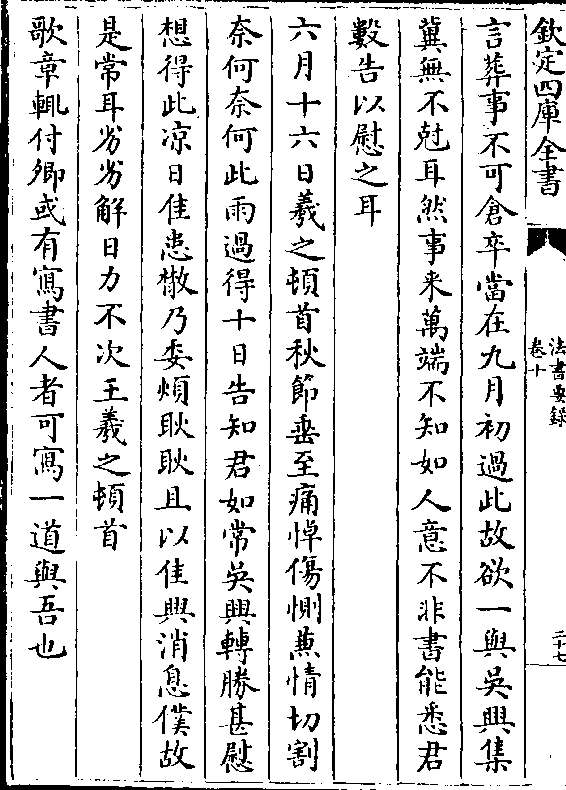 欽定四庫全書
法書要録
卷十
二十七
言葬事不可倉卒當在九月初過此故欲一與吳興集
冀無不尅耳然事来萬端不知如人意不非書能悉君
數告以慰之耳
六月十六日羲之頓首秋節垂至痛悼傷惻兼情切割
奈何奈何此雨過得十日告知君如常吳興轉勝甚慰
想得此凉日佳患散乃委煩耿耿且以佳興消息僕故
是常耳劣劣解日力不次王羲之頓首
歌章輒付卿或有寫書人者可寫一道與吾也